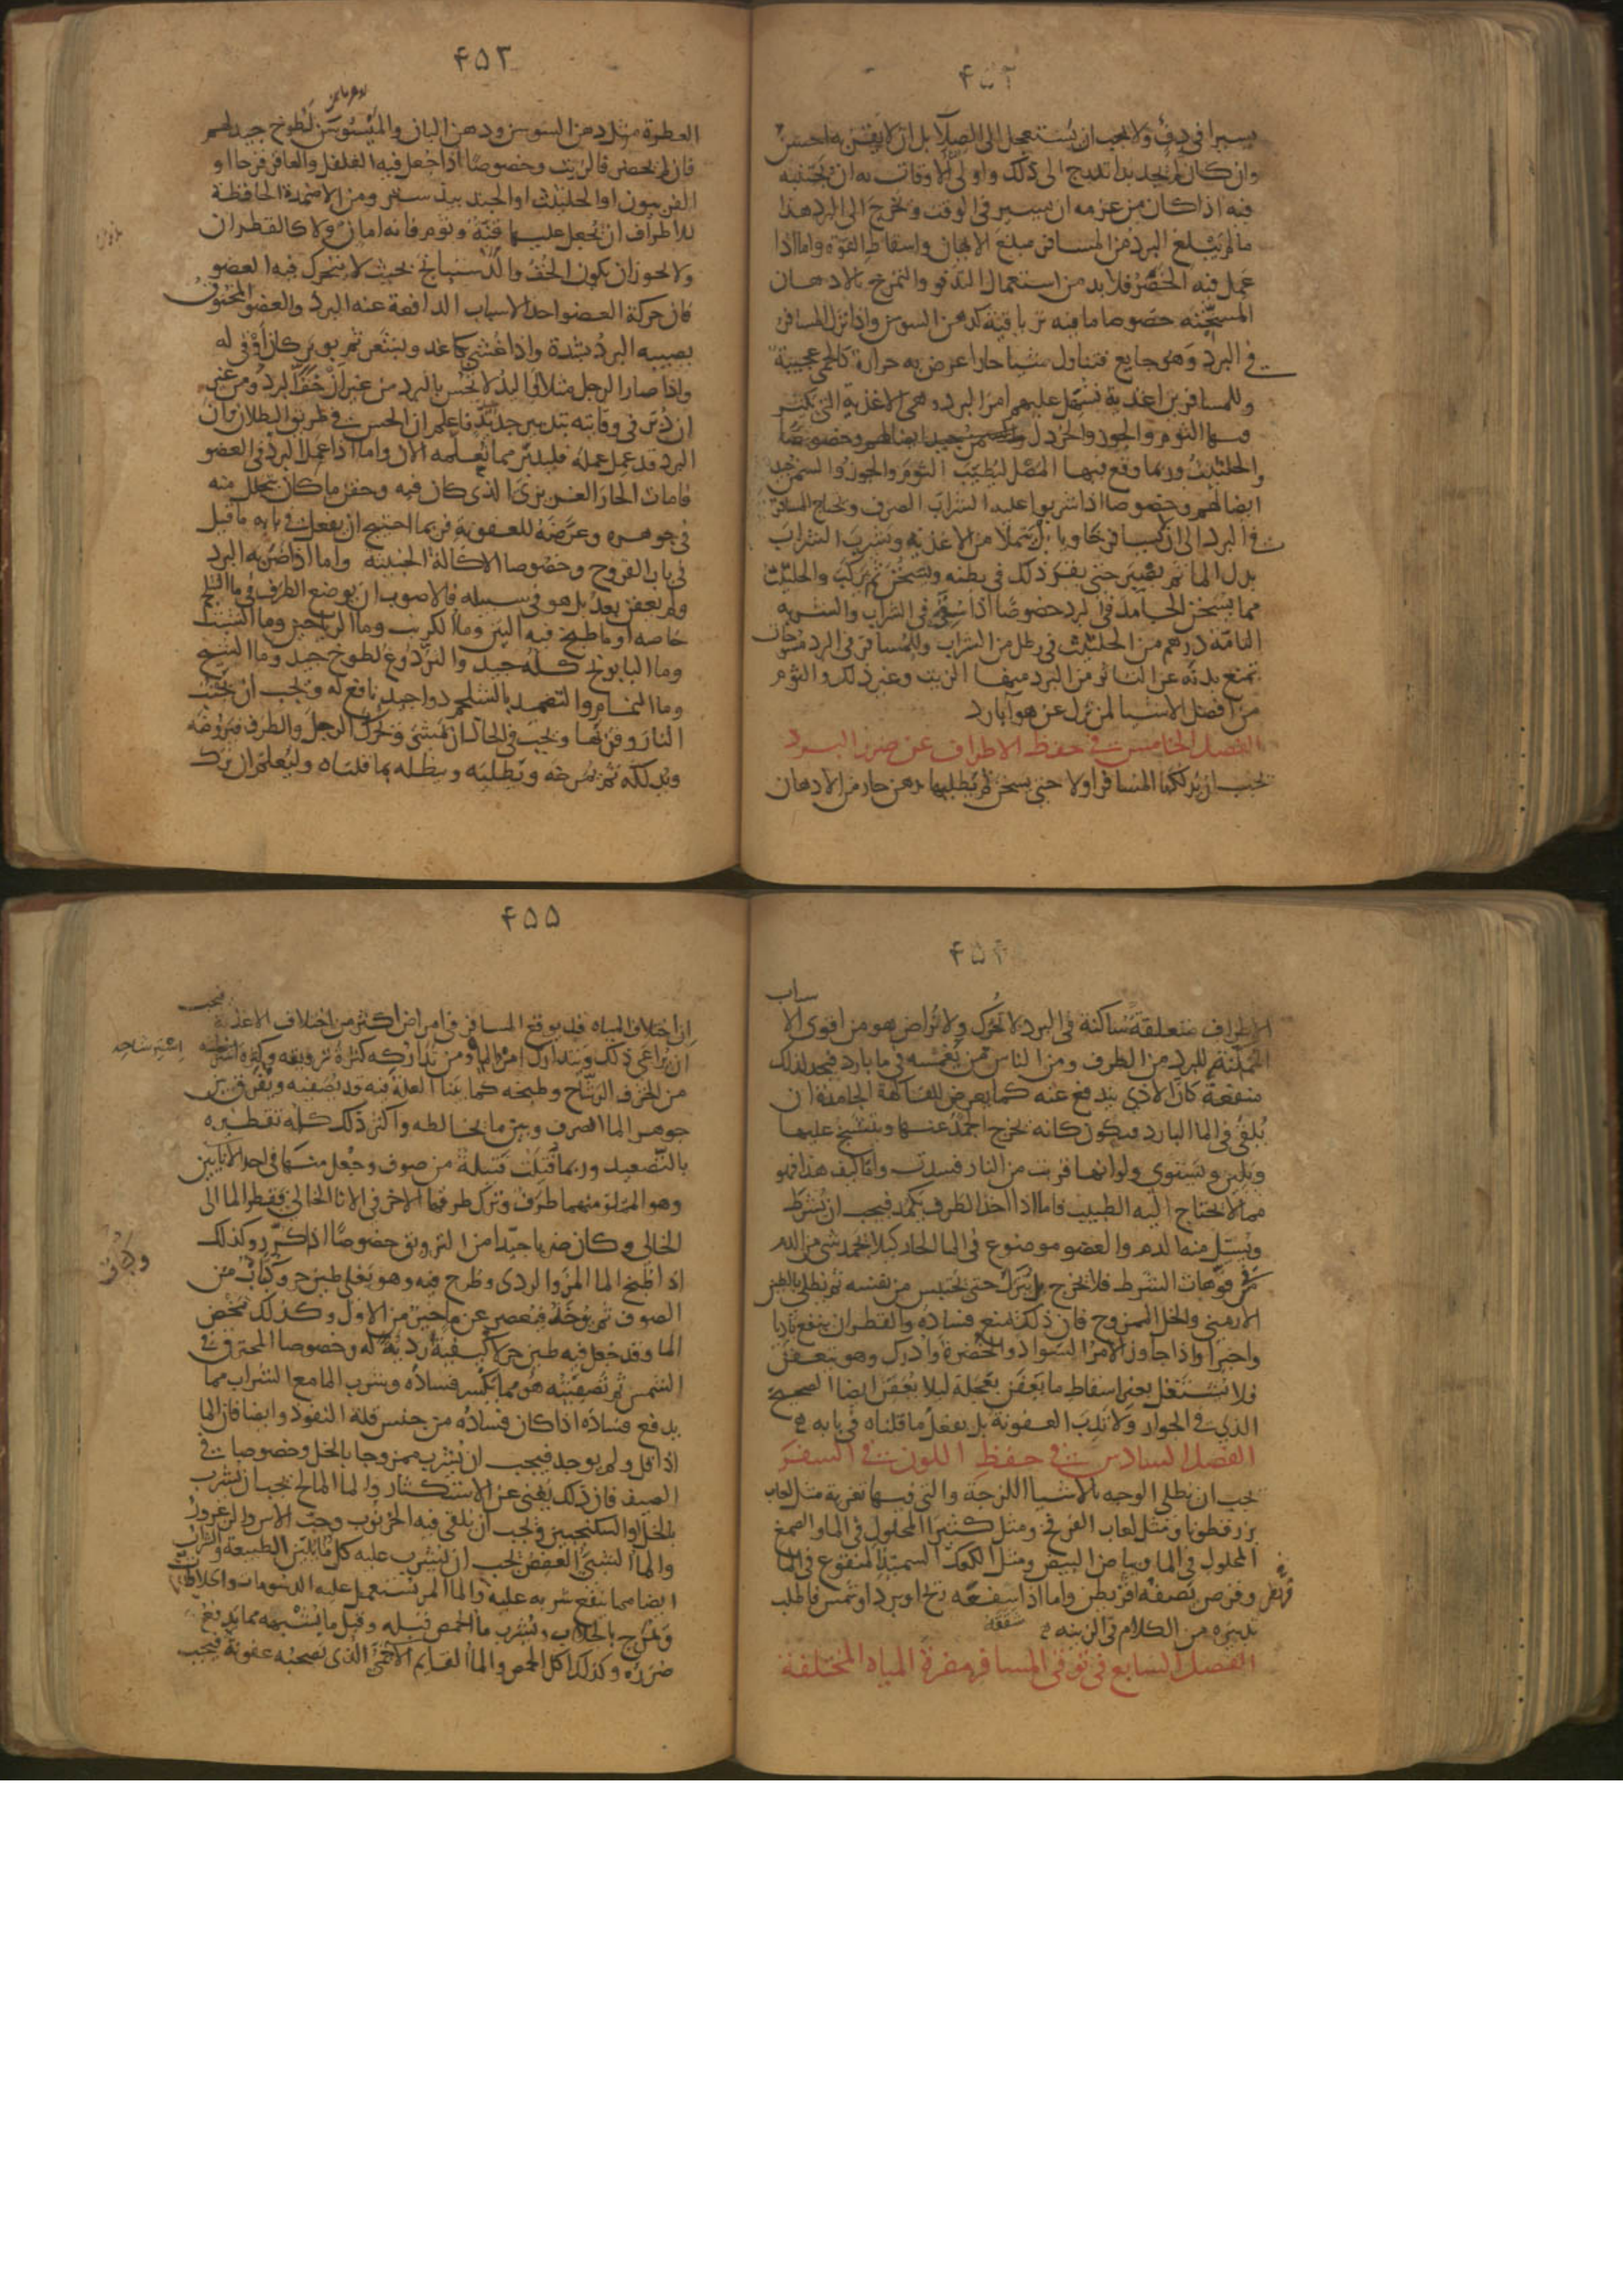 ۴۵۲
يسيرا في دفء ولا يجب ان يستعجل الى الصلا بل ان لا يقربه احسن
وان كان لم يجد بدا تدرج الى ذلك واولى الاوقات به ان يجتنبه
فيه اذا كان من عزمه ان يسير في الوقت ويخرج الى البرد هذا
ما لم يبلغ البرد من المسافر مبلغ الايهان واسقاط القوة واما اذا
عمل فيه الخصر فلا بد من استعمال التدفو والتمرخ بالادهان
المسخنة خصوصا ما فيه ترياقية كدهن السوسن واذا نزل المسافر
في البرد وهو جايع فتناول شيا حارا عرض به حرارة كالحمى عجيبة
وللمسافرين اغذية تسهل عليهم امر البرد وهي الاغذية التي يكثر
فيها الثوم والجوز والخردل
والحلتيت وربما وقع فيها المصل ليطيب الثوم والجوز والسمن جيد
ايضا لهم وخصوصا اذا شربوا عليه الشراب الصرف ويحتاج المسافر
في البرد الى ان لا يسافر خاويا بل يتملا من الاغذية ويشرب الشراب
بدل الما ثم يصبر حتى يقر ذلك في بطنه ويسخن ثم يركب والحلتيت
مما يسخن الجامد في البرد خصوصا اذا سقي في الشراب والشربه
التامة درهم من الحلتيت في رطل من الشراب وللمسافر في البرد مسوحات
تمنع بدنه عن التاثر من البرد منها الزيت وغير ذلك والثوم
من افضل الاشيا لمن نزل عن هوا بارد
الفصل الخامس في حفظ الاطراف عن ضرر البرد
يجب ان يدلكها المسافر اولا حتى يسخن ثم يطليها بدهن حار من الادهان
۴۵۳
العطرة مثل دهن السوسن ودهن البان والميسوسن لطوخ جيد لهم
فان لم يحضر فالزيت وخصوصا اذا جعل فيه الفلفل والعاقرقرحا او
الفربيون او الحلتيت او الجندبيدستر ومن الاضمدة الحافظة
للاطراف ان يجعل عليها قنة وثوم فانه امان ولا كالقطران
ولا يجوز ان يكون الخف والدستبانج بحيث لا يتحرك فيه العضو
فان حركة العضو احد الاسباب الدافعة عنه البرد والعضو المخنوق
يصيبه البرد بشدة واذا غشي بكاغد وبشعر ثم بوبر كان اوقى له
واذا صار الرجل مثلا او اليد لا تحس بالبرد من غير ان خف البرد ومن غير
ان دبر في وقايته بتدبير جديد فاعلم ان الحس في طريق البطلان وان
البرد قد عمل عمله فليدبر مما تعلمه الان واما اذا عمل البرد في العضو
فامات الحار الغريزي الذي كان فيه وحقن ما كان يتحلل منه
في جوهره وعرضه للعفونة فربما احتيج ان يفعل في بابه ما قيل
في باب القروح وخصوصا الاكالة الخبيثة واما اذا ضربه البرد
ولم يعفن بعد بل هو في سبيله فالاصوب ان يوضع الطرف في ما الثلج
خاصه او ما طبخ فيه التين وما الكرنب وما الرياحين وما الشبت
وما البابونج كله جيد والتردوغ لطوخ جيد وما الشيح
وما النمام والتضميد بالشلجم دوا جيد نافع له ويجب ان يجتنب
النار وقربها ويجب في الحال ان يمشي ويحرك الرجل والطرف فيروضه
ويدلكه ثم يمرخه ويطليه وينطله بما قلناه وليعلم ان ترك
۴۵۴
الاطراف متعلقة ساكنة في البرد لا تحرك ولا تراض هو من اقوى الاسباب
الممكنة للبرد من الطرف ومن الناس من يغمسه في ما بارد فيجد لذلك
منفعة كان الاذى يندفع عنه كما يعرض للفاكهة الجامدة ان
يلقى في الما البارد فيكون كانه يخرج الجمد عنها وينتسج عليها
ويلين ويستوي ولو انها قربت من النار فسدت واما كيف هذا فهو
مما لا يحتاج اليه الطبيب فاما اذا اخذ الطرف يكمد فيجب ان يشرط
ويسيل منه الدم والعضو موضوع في الما الحار كيلا يجمد شي من الدم
في فوهات الشرط فلا يخرج بل يترك حتى يحتبس من نفسه ثم يطلى بالطين
الارمني والخل الممزوج فان ذلك يمنع فساده والقطران ينفع باديا
واخيرا واذا جاوز الامر السواد والخضرة وادرك وهو يتعفن
فلا تشتغل بغير اسقاط ما يعفن بعجلة ليلا يعفن ايضا الصحيح
الذي في الجوار ولا تدب العفونة بل يفعل ما قلناه في بابه
الفصل السادس في حفظ اللون في السفر
يجب ان يطلى الوجه بالاشيا اللزجة والتي فيها تغرية مثل لعاب
بزرقطونا ومثل لعاب العرفج ومثل كثيرا المحلول في الما والصمغ
المحلول في الما وبياض البيض ومثل الكعك السميذ المنقوع في الما
وقرص يصفه اقريطن واما اذا شققه ريح او برد او شمس فاطلب
تدبيره من الكلام في الزينه
الفصل السابع في توقي المسافر مضرة المياه المختلفة
۴۵۵
ان اختلاف المياه قد يوقع المسافر في امراض اكثر من اختلاف الاغذية فيجب
ان يراعى ذلك ويتدارك امر الما ومن تداركه كثرة ترويقه وكثرة استرشاحه
من الخزف الرشاح وطبخه كما بينا العلة فيه قد يصفيه ويفرق بين
جوهر الما الصرف وبين ما يخالطه واكثر ذلك كله تقطيره
بالتصعيد وربما فتلت فتيلة من صوف وجعل منها في احد الانايين
وهو المملو منهما طرف وترك طرفها الاخر في الانا الخالي فقطر الما الى
الخالي وكان ضربا جيدا من الترويق خصوصا اذا كرر وكذلك
اذا طبخ الما المر والردي وطرح فيه وهو يغلي طين حر وكباب من
الصوف ثم يوخذ فيعصر عن ما خير من الاول وكذلك مخض
الما وقد جعل فيه طين حر لا كيفية ردية له وخصوصا المحترق في
الشمس ثم تصفيته هو مما يكسر فساده وشرب الما مع الشراب مما
يدفع فساده اذا كان فساده من جنس قلة النفوذ وايضا فان الما
اذا قل ولم يوجد فيجب ان يشرب ممزوجا بالخل وخصوصا في
الصيف فان ذلك يغني عن الاستكثار والما المالح يجب ان يشرب
بالخل او السكنجبين ويجب ان يلقى فيه الخرنوب وحب الاس والزعرور
والما الشبي العفص يجب ان يشرب عليه كل ما يلين الطبيعة والشراب
ايضا مما ينفع شربه عليه والما المر تستعمل عليه الدسومات والحلاوات
ويمزج بالجلاب وشرب ما الحمص قبله وقبل ما يشبهه مما يدفع
ضرره وكذلك اكل الحمص والما القايم الاجمي الذي يصحبه عفونة فيجب